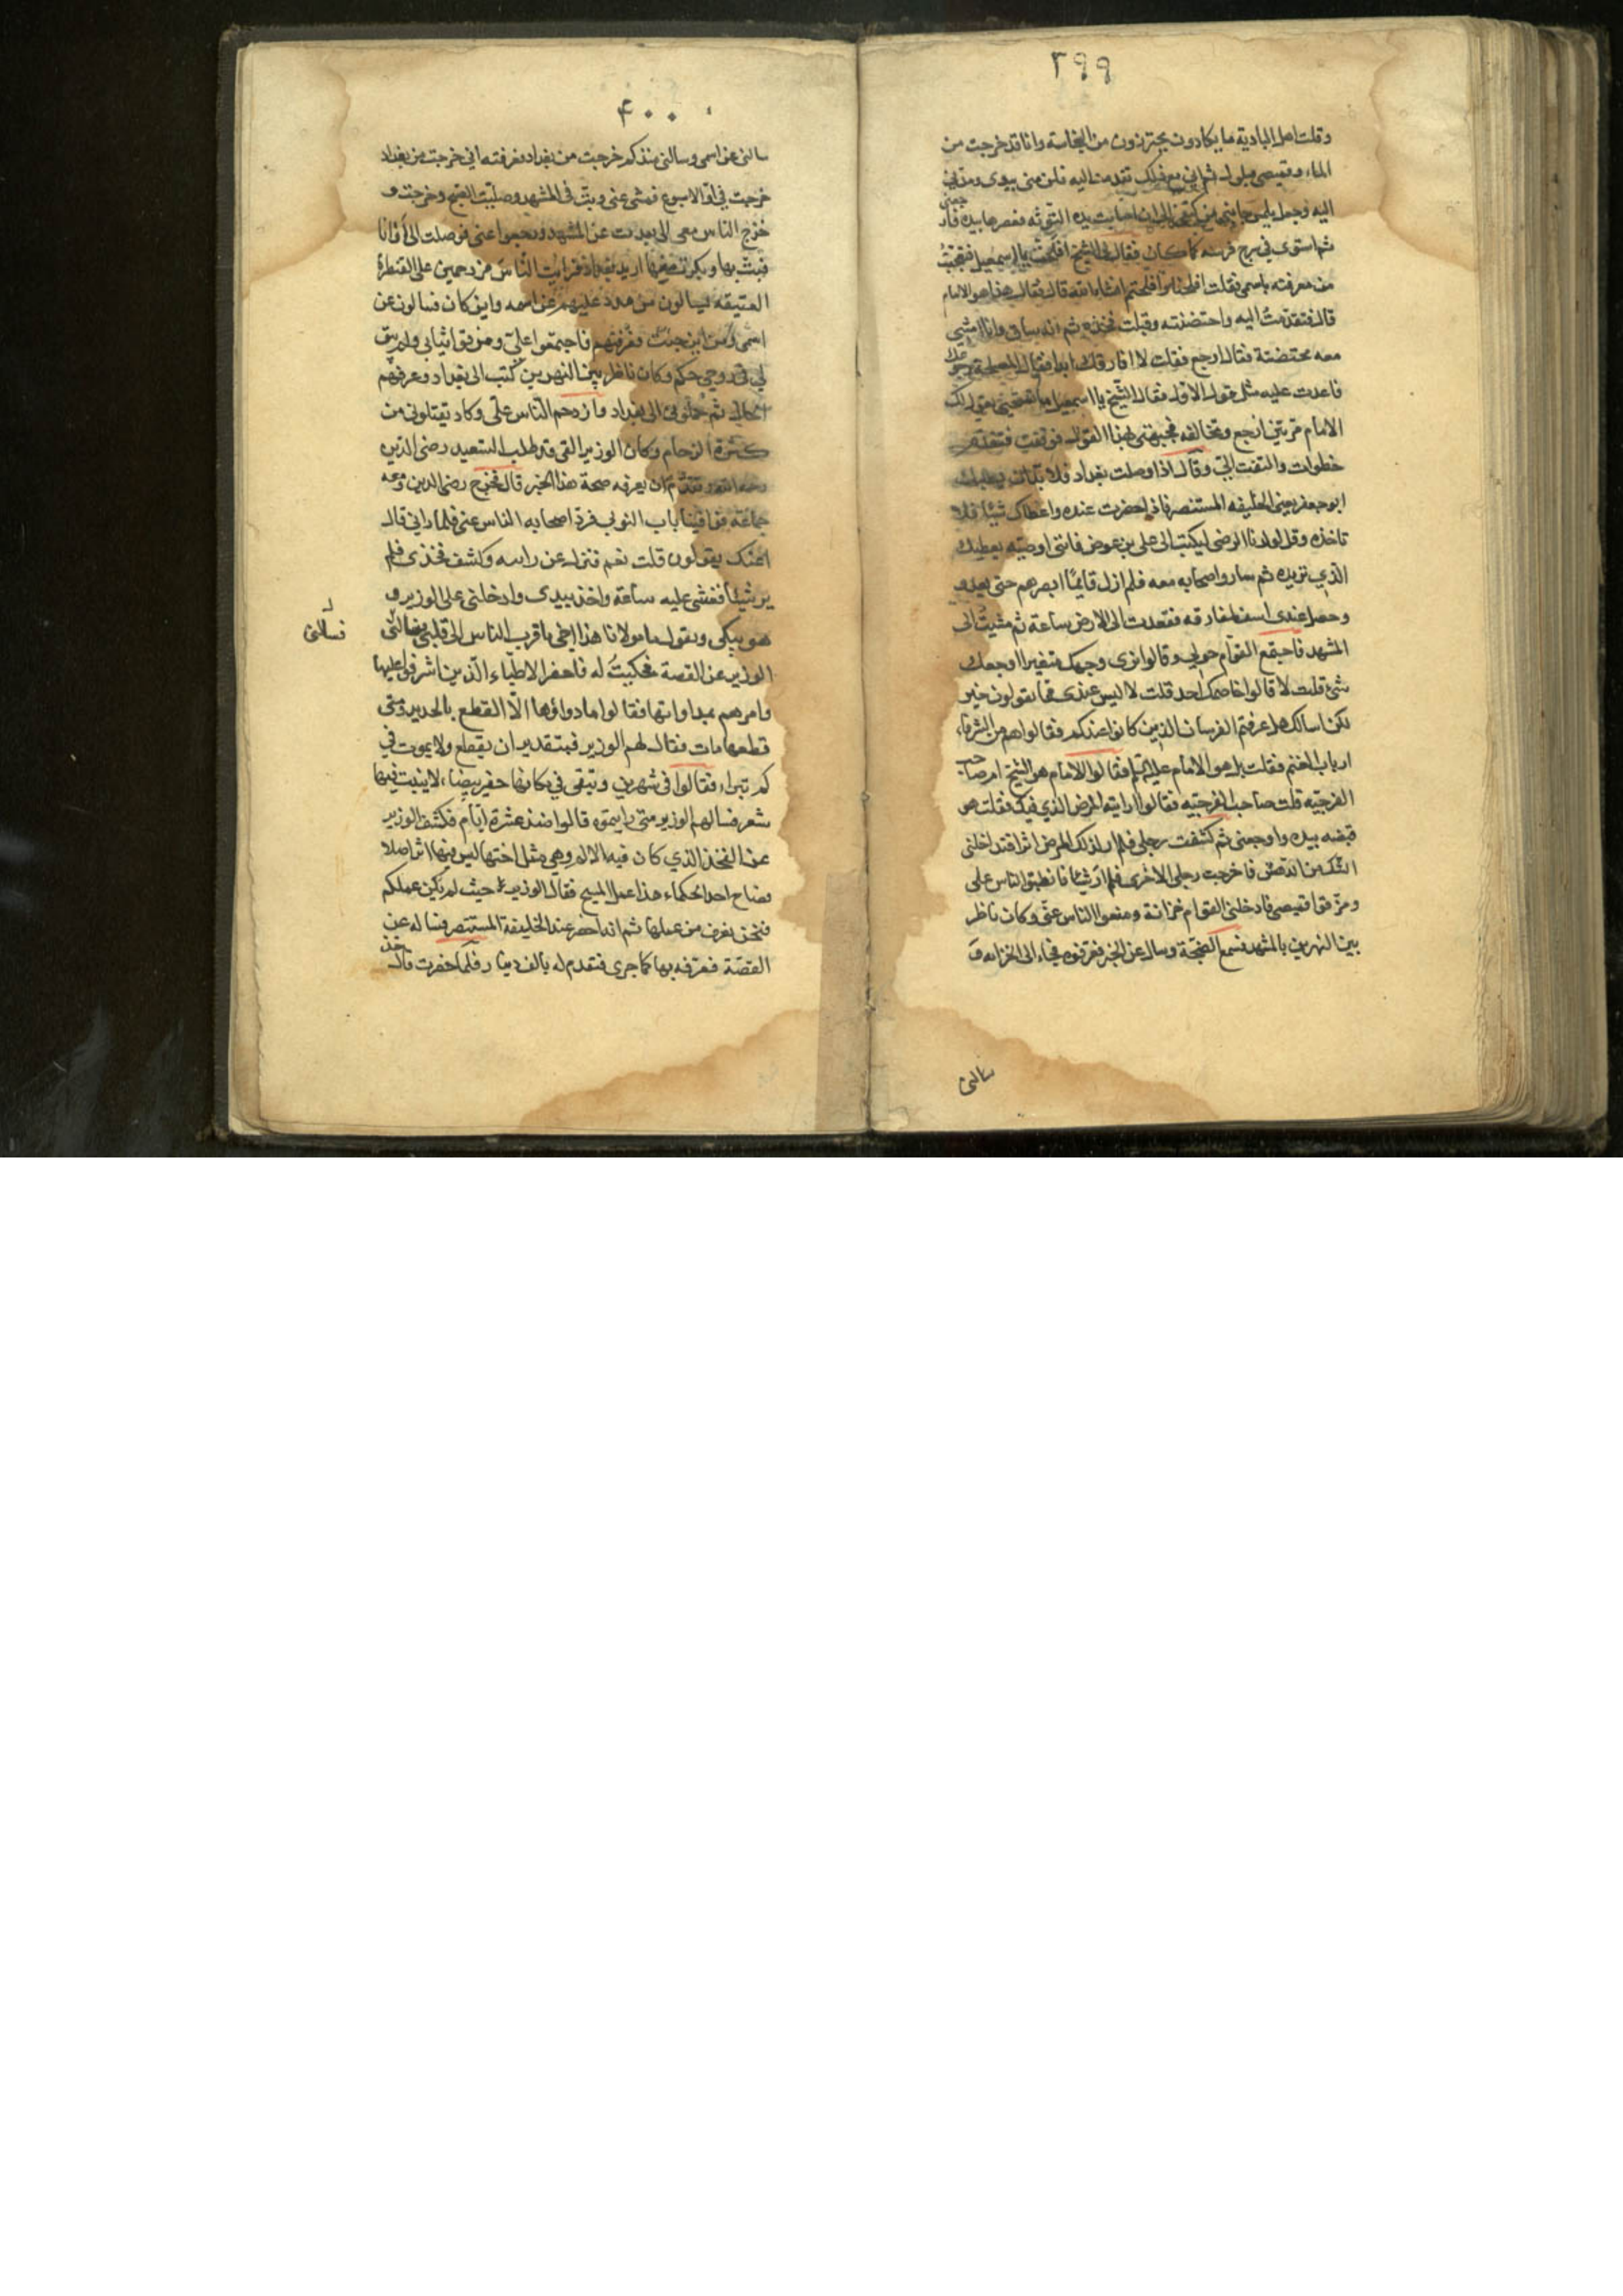 ٣٩٩
وقلت اهل البادية ما يكادون يحترزون من النجاسة وانا قد خرجت من
الماء وقميصي مبلول ثم اني مع ذلك تقدمت اليه فلزمني بيدي ومدني
اليه وجعل يلمس جانبي من كتفي الى ان اصابت يده التوثه فعصرها بيده فاوجعني
ثم استوى في سرج فرسه كما كان فقال لي الشيخ افلحت يا اسمعيل فتعجبت
من معرفته باسمي فقلت افلحنا وافلحتم انشاء الله قال فقال هذا هو الامام
قال فتقدمت اليه واحتضنته وقبلت فخذه ثم انه ساق وانا امشي
معه محتضنة فقال ارجع فقلت لا افارقك ابدا فقال المصلحة رجوعك
فاعدت عليه مثل قول الاول فقال الشيخ يا اسمعيل ما تستحيي يقول لك
الامام مرتين ارجع وتخالفه فجبهني بهذا القول فوقفت فتقدم
خطوات والتفت الي وقال اذا وصلت بغداد فلا بد ان يطلبك
ابو جعفر يعني الخليفه المستنصر فاذا حضرت عنده واعطاك شيئا فلا
تاخذه وقل لولدنا الرضي ليكتب الى علي بن عوض فانني اوصيه يعطيك
الذي تريده ثم سار واصحابه معه فلم ازل قايما ابصرهم حتى بعدو
وحصل عندي اسف لمفارقه فقعدت الى الارض ساعة ثم مشيت الى
المشهد فاجتمع القوام حولي وقالوا نرى وجهك متغيرا اوجعك
شئ قلت لا قالوا خاصمك احد قلت لا ليس عندي مما تقولون خبر
لكن اسالكم هل عرفتم الفرسان الذين كانوا عندكم فقالوا هم من الشرفاء
ارباب الغنم فقلت بل هو الامام عليه السلم فقالوا الامام هو الشيخ ام صاحب
الفرجيه قلت صاحب الفرجيه فقالوا اريته المرض الذي فيك فقلت هو
قبضه بيده واوجعني ثم كشفت رجلي فلم ار لذلك المرض اثرا فتداخلني
الشك من الدهش فاخرجت رجلي الاخرى فلم ار شيئا فانطبق الناس علي
ومزقوا قميصي فادخلني القوام خزانة ومنعوا الناس عني وكان ناظر
بين النهرين بالمشهد فسمع الضجة وسال عن الخبر فعرفوه فجاء الى الخزانه و
سالني
٤٠٠
سالني عن اسمي وسالني منذ كم خرجت من بغداد فعرفته اني خرجت من بغداد
خرجت في اول الاسبوع فمشى عني وبت في المشهد وصليت الصبح وخرجت و
خرج الناس معي الى بعدت عن المشهد ورجعوا عني فوصلت الى أوانا
فبت بها وبكرت منها اريد بغداد فرايت الناس مزدحمين على القنطرة
العتيقه يسالون من ورد عليهم عن اسمه واين كان فسالون عن
اسمي ومن اين جئت فعرفتهم فاجتمعوا علي ومزقوا ثيابي ولم يبق
لي في روحي حكم وكان ناظر بين النهرين كتب الى بغداد وعرفهم
الحال ثم حملوني الى بغداد وازدحم الناس علي وكاد يقتلوني من
كثرة الزحام وكان الوزير القمي قد طلب السعيد رضي الدين
رحمه الله وتقدم ان يعرفه صحة هذا الخبر قال فخرج رضي الدين ومعه
جماعة فوافينا باب النوبي فرد اصحابه الناس عني فلما راني قال
اعنك يقولون قلت نعم فنزل عن رابته وكشف فخذي فلم
ير شيئا فغشي عليه ساعة واخذ بيدي وادخلني على الوزير و
هو يبكي ويقول يا مولانا هذا اخي واقرب الناس الى قلبي فسالني
فسالني
الوزير عن القصة فحكيت له فاحضر الاطباء الذين اشرفوا عليها
وامرهم بمداواتها فقالوا ما دواؤها الا القطع بالحديد ومتى
قطعها مات فقال لهم الوزير فبتقدير ان يقطع ولا يموت في
كم تبراء فقالوا في شهرين وتبقى في مكانها حفيره بيضاء لا ينبت فيها
شعر فسالهم الوزير متى رايتموه قالوا منذ عشرة ايام فكشف الوزير
عن الفخذ الذي كان فيه الالم وهي مثل اختها ليس فيها اثر اصلا
فصاح احد الحكماء هذا عمل المسيح فقال الوزير حيث لم يكن عملكم
فنحن نعرف من عملها ثم انه احضر عند الخليفة المستنصر فساله عن
القصة فعرفه بها كما جرى فتقدم له بالف دينار فلما حضرت قال خذ